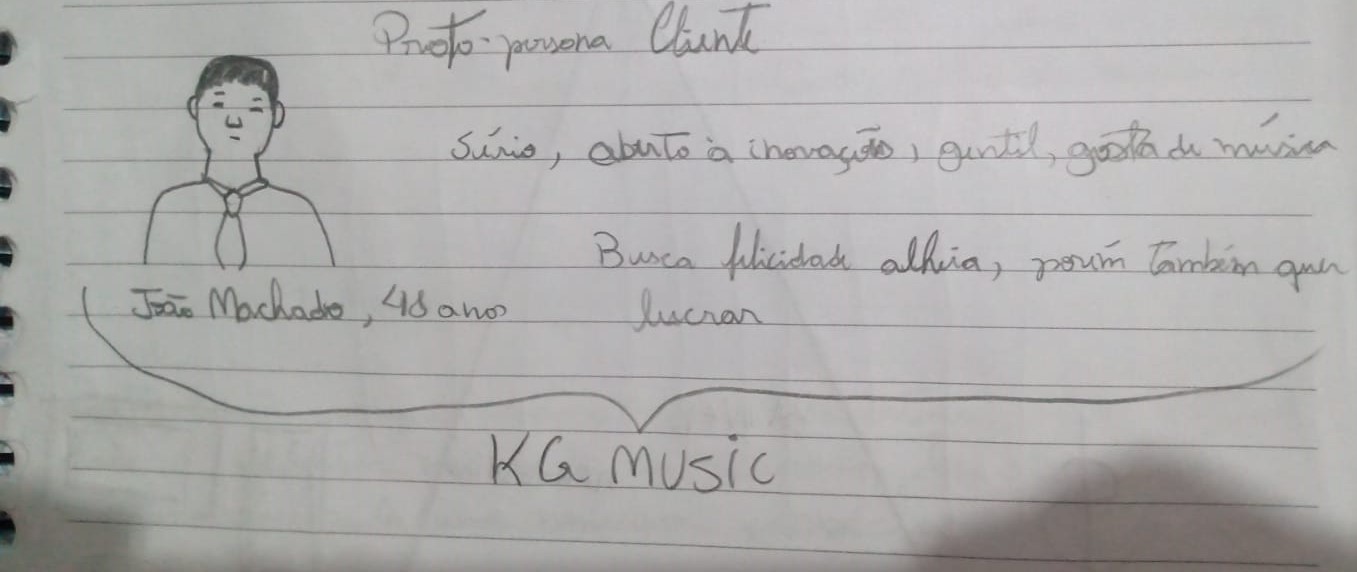 Proto-persona Cliente
Sério, aberto à inovação, gentil, gosta de música
Busca felicidade alheia, porém também quer
lucrar
João Machado, 48 anos
KG MUSIC